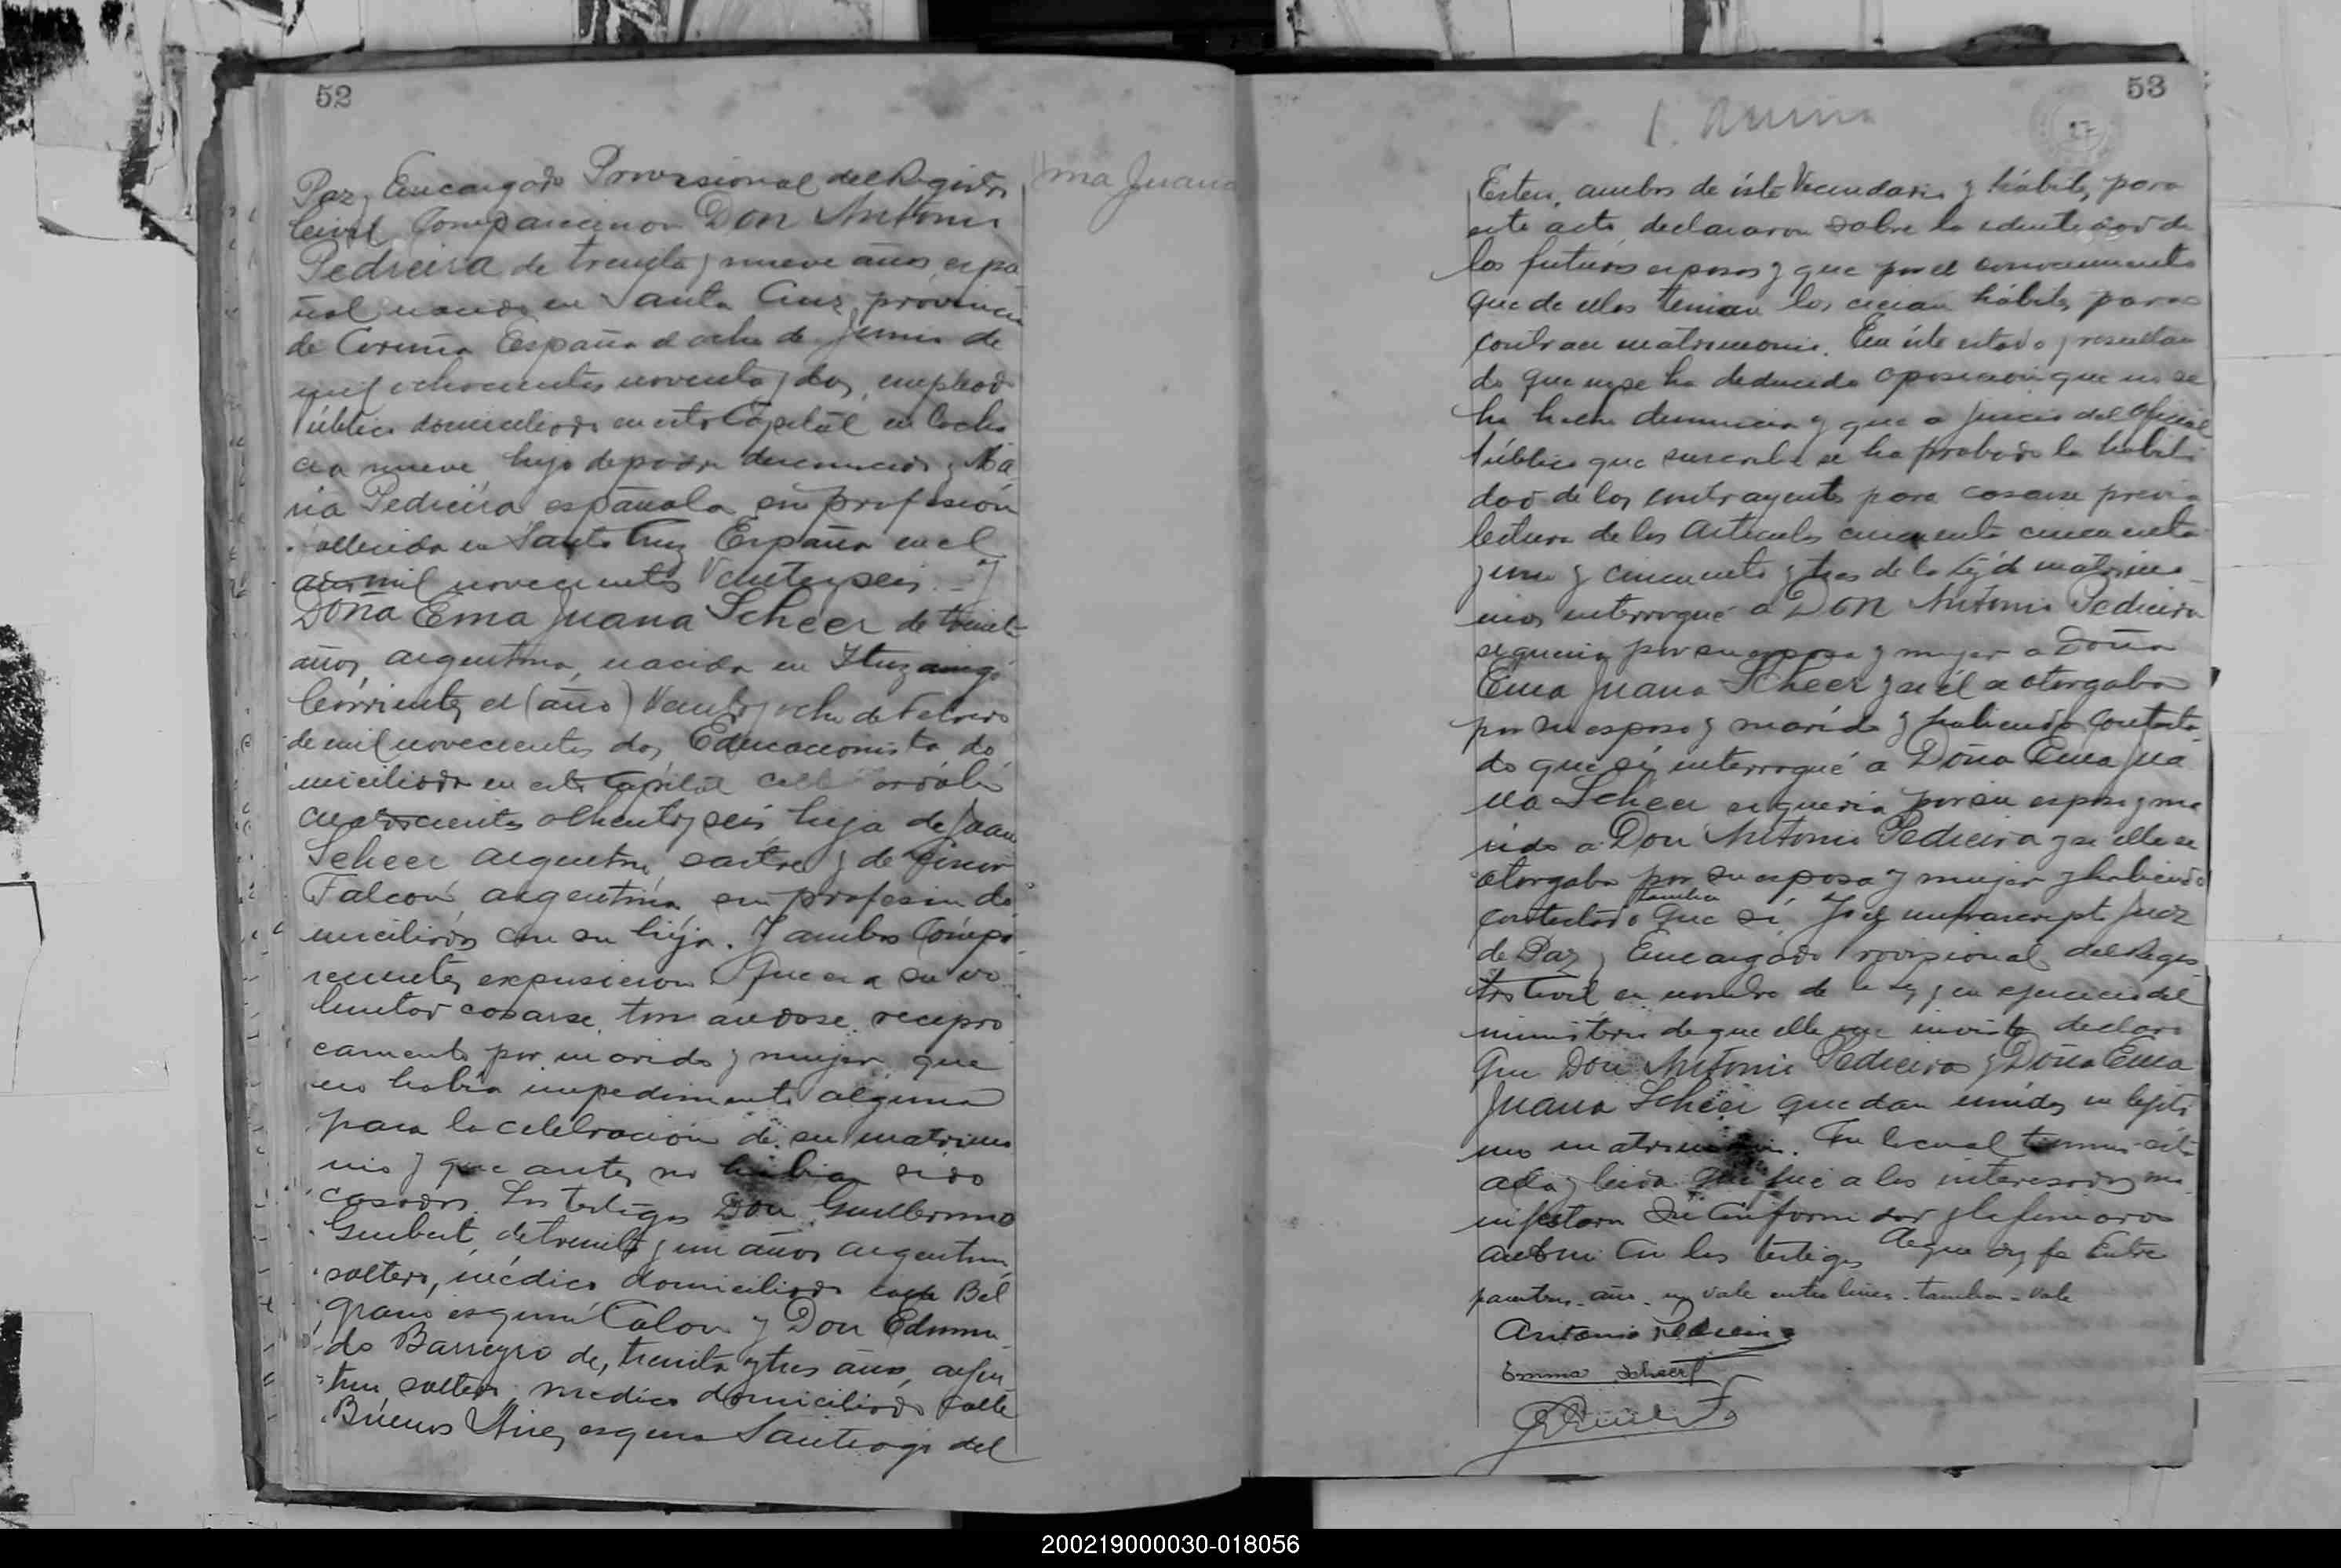 52
Paz y Encargado Provisional del Registro
Civil Comparecieron Don Antonio
Pedreira de treinta y nueve años, espa
ñol nacido en Santa Cruz provincia
de Coruña España el ocho de Junio de
mil ochocientos noventa y dos, empleado
Público domiciliado en esta Capital en Cocha
nueve hijo de padre desconocido y Ma
ria Pedreira española sin profesión
fallecida en Santa Cruz España en el
año mil novecientos Veinteyseis. - y
Doña Ema Juana Scheer de treinta
años, argentina, nacida en Ituzaingó
Corrientes el (año) Veinte y ocho de Febrero
de mil novecientos dos, Educacionista do
miciliada en esta Capital calle
cuatrocientos ochenta y seis, hija de Juan
Scheer argentino, sastre y de
Falcón, argentina sin profesion do
miciliados con su hija. Y ambos Compa
recientes expusieron Que era su vo
luntad casarse, tomandose recipro
camente por marido y mujer, que
no habia impedimento alguno
para la celebración de su matrimo
nio y que antes no habian sido
casados. Los testigos Don Guillermo
de treinta y un años argentino,
soltero, médico domiciliado calle Bel
grano esquina Colon y Don Edmun
do Barreyro de, treinta y tres años, argen
tino soltero, medico domiciliado calle
Buenos Aires esquina Santiago del
ma Juana
53
Estero, ambos de éste Vecindario y hábiles para
este acto declararon sobre la identidad de
los futuros esposos y que por el conocimiento
que de ellos tenian los creian hábiles para
contraer matrimonio. En éste estado y resultan
do que no se ha deducido oposicion que no se
ha hecho denuncia y que a juicio del Oficial
Público que suscribe se ha probado la habili
dad de los contrayentes para casarse previa
lectura de los Articulos cincuenta cincuenta
y uno y cincuenta y tres de la Ley de matrimo
nios interrogué a Don Antonio Pedreira
si queria por su esposa y mujer a Doña
Ema Juana Scheer y si él se otorgaba
por su esposo y marido y habiendo Contesta
do que sí, interrogué a Doña Ema Jua
na Scheer si queria por su esposo y ma
rido a Don Antonio Pedreira y si ella se
otorgaba por su esposa y mujer y habiendo
contestado tambien Que sí, Yo el infrascripto Juez
de Paz y Encargado Provisional del Regis
tro Civil en nombre de la Ley y en ejercicio del
ministerio de que ella me inviste declaro
Que Don Antonio Pedreira y Doña Ema
Juana Scheer quedan unidos en legiti
mo matrimonio. Con lo cual termino este
acta y leida que fué a los interesados ma
nifestaron Su Conformidad y la firmaron
con los testigos De que doy fe Entre
parentesis - año - no vale entre lineas - tambien - Vale
Antonio Pedreira
Emma Scheer
200219000030-018056